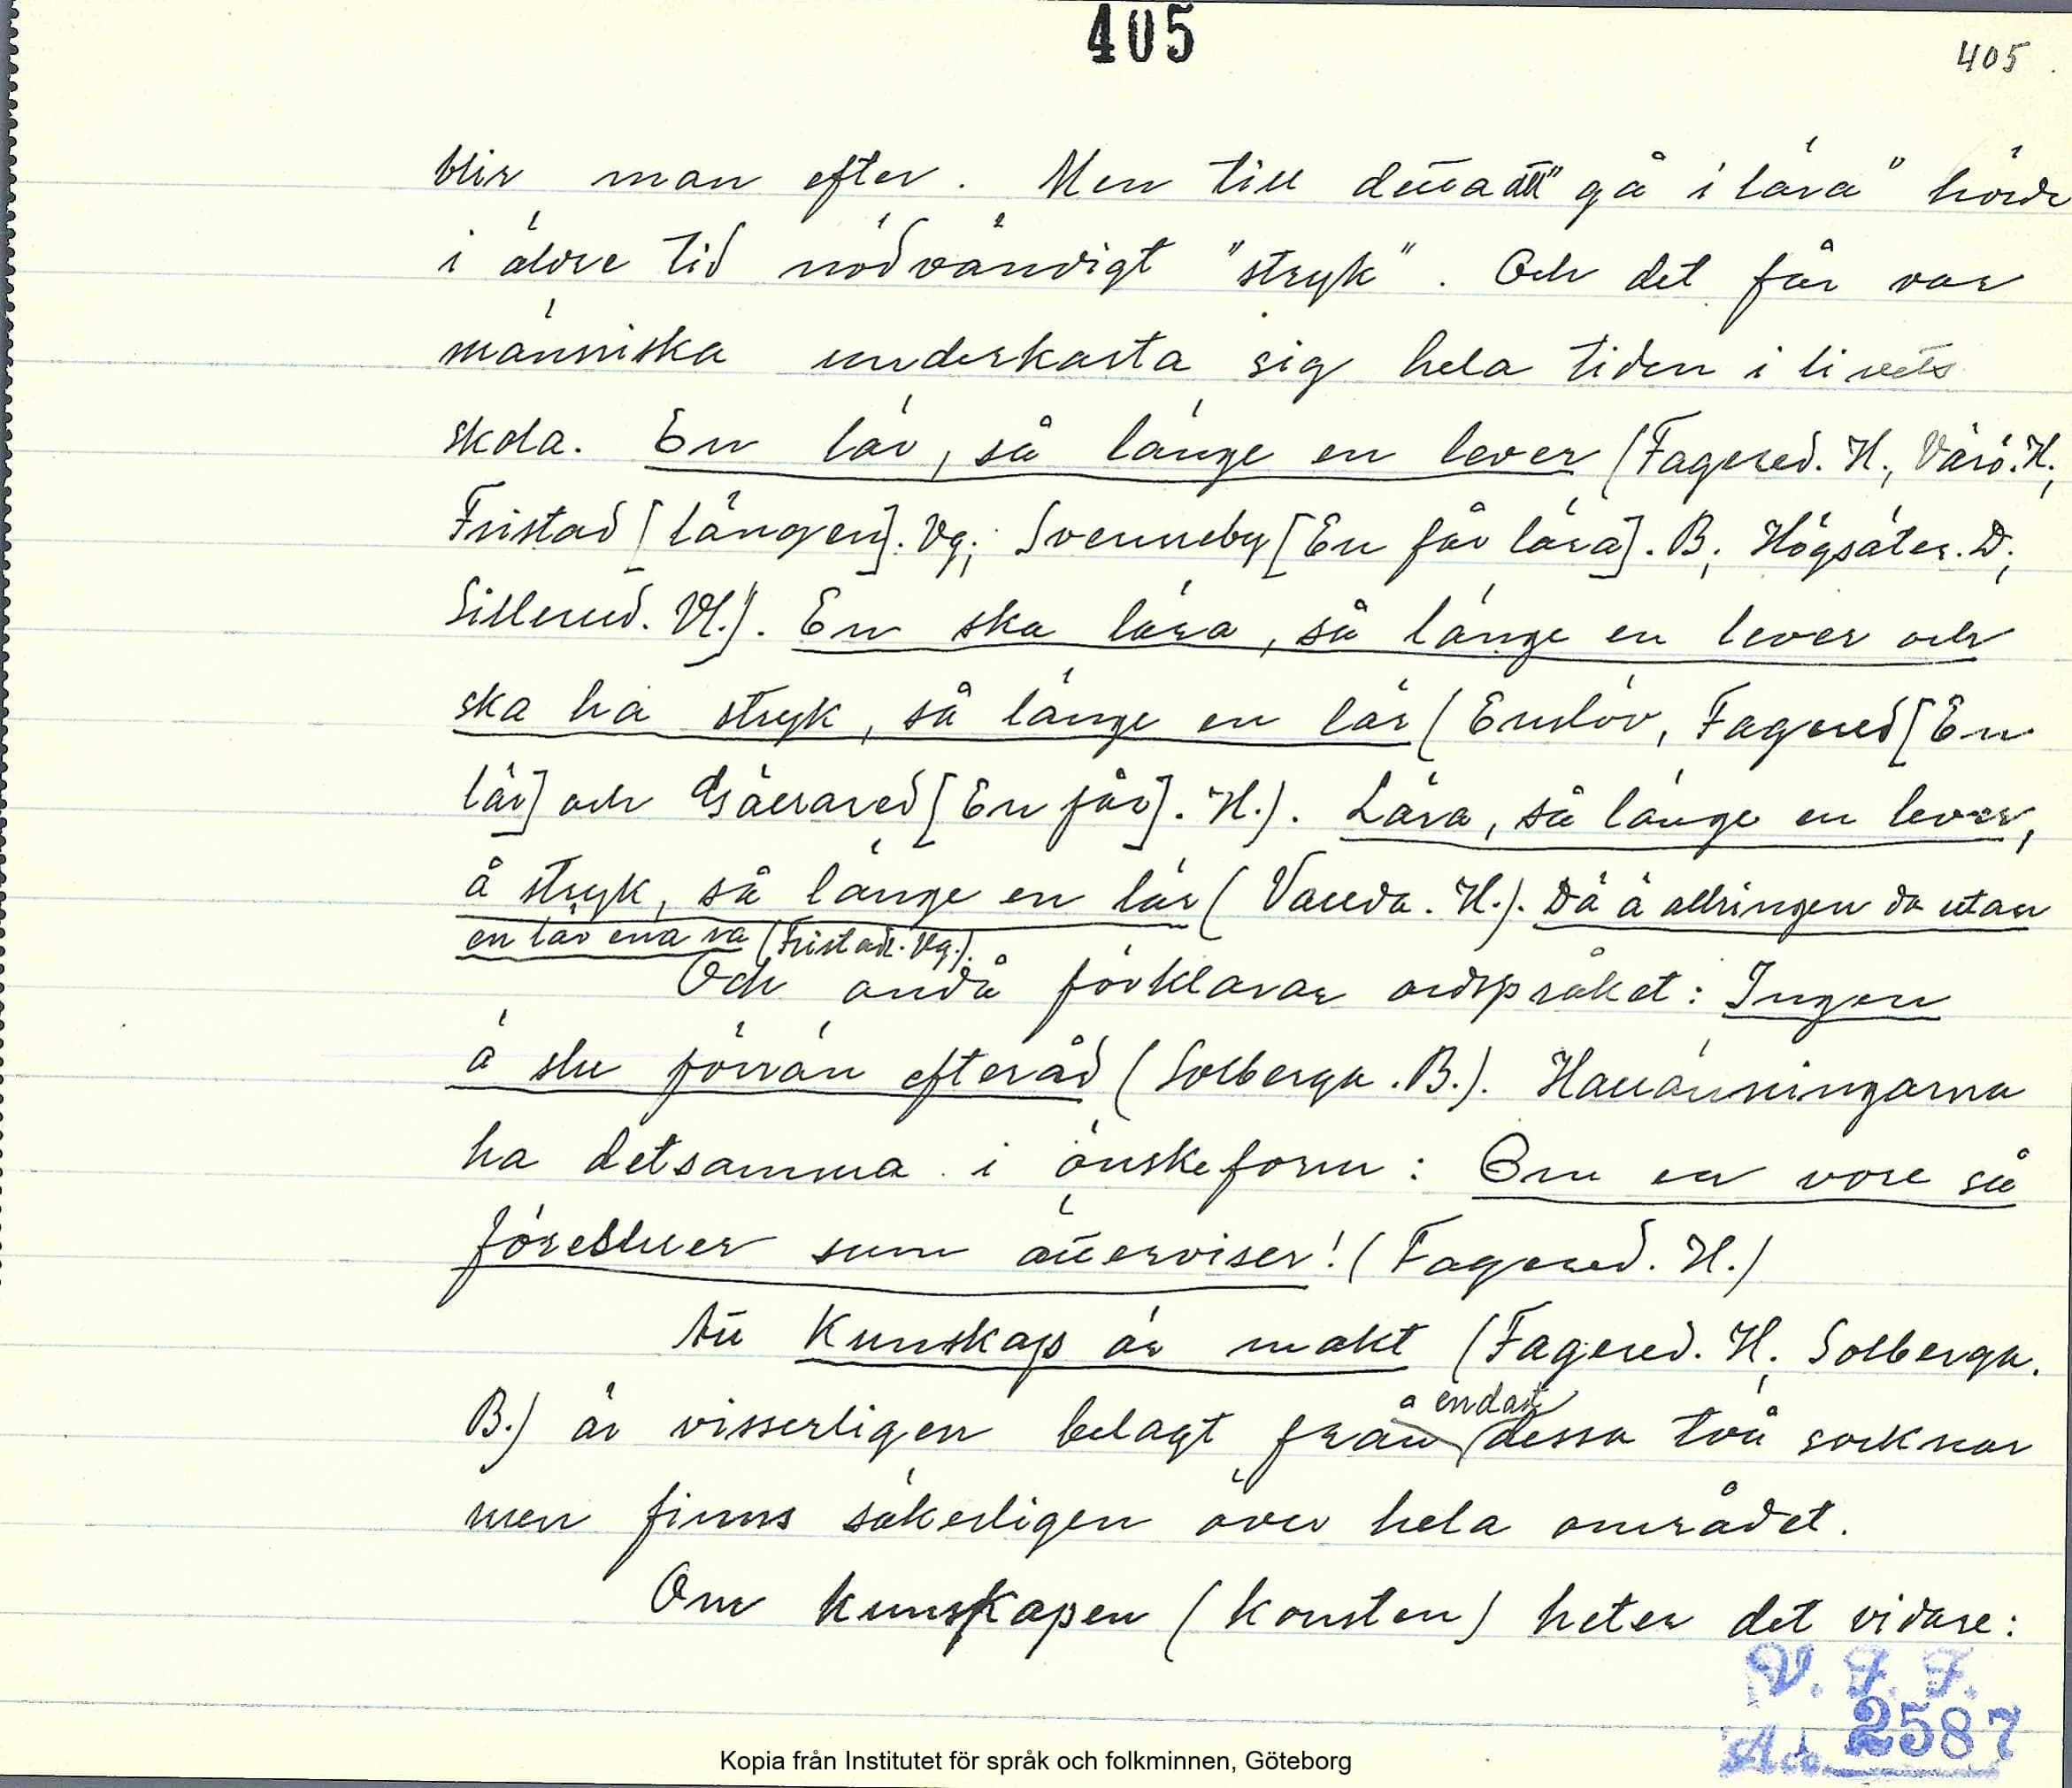 405
405
blir man efter. Men till detta att "gå i lära" hörde
i äldre tid nödvändigt "stryk". Och det får var
människa underkasta sig hela tiden i livets
skola. En lär, så länge en lever (Fagered. H., Värö. H.,
Fristad [längen]. Vg; Svenneby [En får lära]. B; Högsäter. D;
Sillerud. Vl.). En ska lära, så länge en lever och
ska ha stryk, så länge en lär (Enslöv, Fagered [En
lär] och Gällared [En får]. H.). Lära, så länge en lever,
å stryk, så länge en lär (Vallda. H.). Dä ä allringen da utan
en lär ena va (Fristad. Vg.).
Och ändå förklarar ordspråket: Ingen
ä slu förrän efteråd (Solberga. B.). Hallänningarna
ha detsamma i önskeform: Om en vore så
föresluer sum ätterviser! (Fagered. H.)
Att Kunskap är makt (Fagered. H; Solberga.
B.) är visserligen belagt från endast dessa två socknar
men finns säkerligen över hela området.
Om kunskapen (konsten) heter det vidare:
V. F. F.
Acc. 2587
Kopia från Institutet för språk och folkminnen, Göteborg